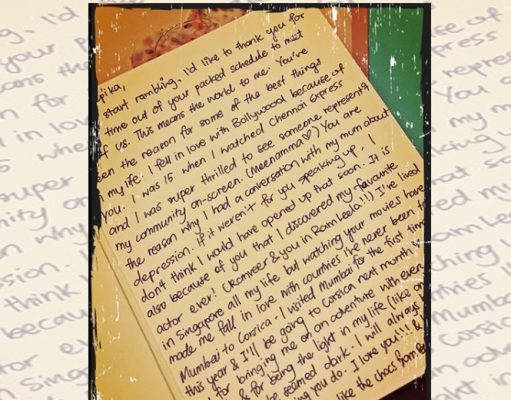 pika,
start rambling, I'd like to thank you for
time out of your packed schedule to meet
of us. This means the world to me. You've
een the reason for some of the best things
n my life. I fell in love with Bollywood because of
you. I was 15 when I watched Chennai Express
and I was super thrilled to see someone represent
my community on-screen. (Meenamma ♡) You are
the reason why I had a conversation with my mum about
depression. If it weren't for you speaking up, I
don't think I would have opened up that soon. It is
also because of you that I discovered my favourite
actor ever! (Ranveer & you in Ram Leela!!) I've lived
in Singapore all my life but watching your movies have
made me fall in love with countries I've never been to.
Mumbai to Corsica - I visited Mumbai for the first time
this year & I'll be going to Corsica next month.
for bringing me on an adventure with every
& for being the light in my life (like on
be seemed dark. I will always
ing you do. I love you!!! &
like the chocs from